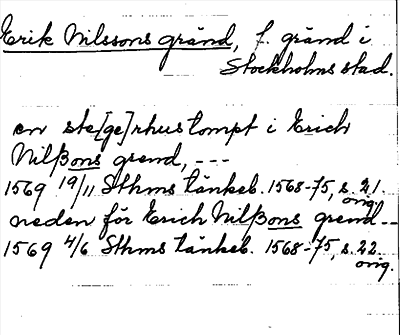 Erik Nilssons gränd, f. gränd i
Stockholms stad.
en ste[ge]rhustompt i Erich
Nilßons grend, ---
1569 19/11 Sthms tänkeb. 1568-75, s. 21.
orig.
neden för Erich Nilßons grend --
1569 4/6 Sthms tänkeb. 1568-75, s. 22.
orig.